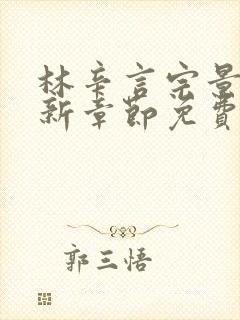 林辛言宗景
新章節免費
郭三悟